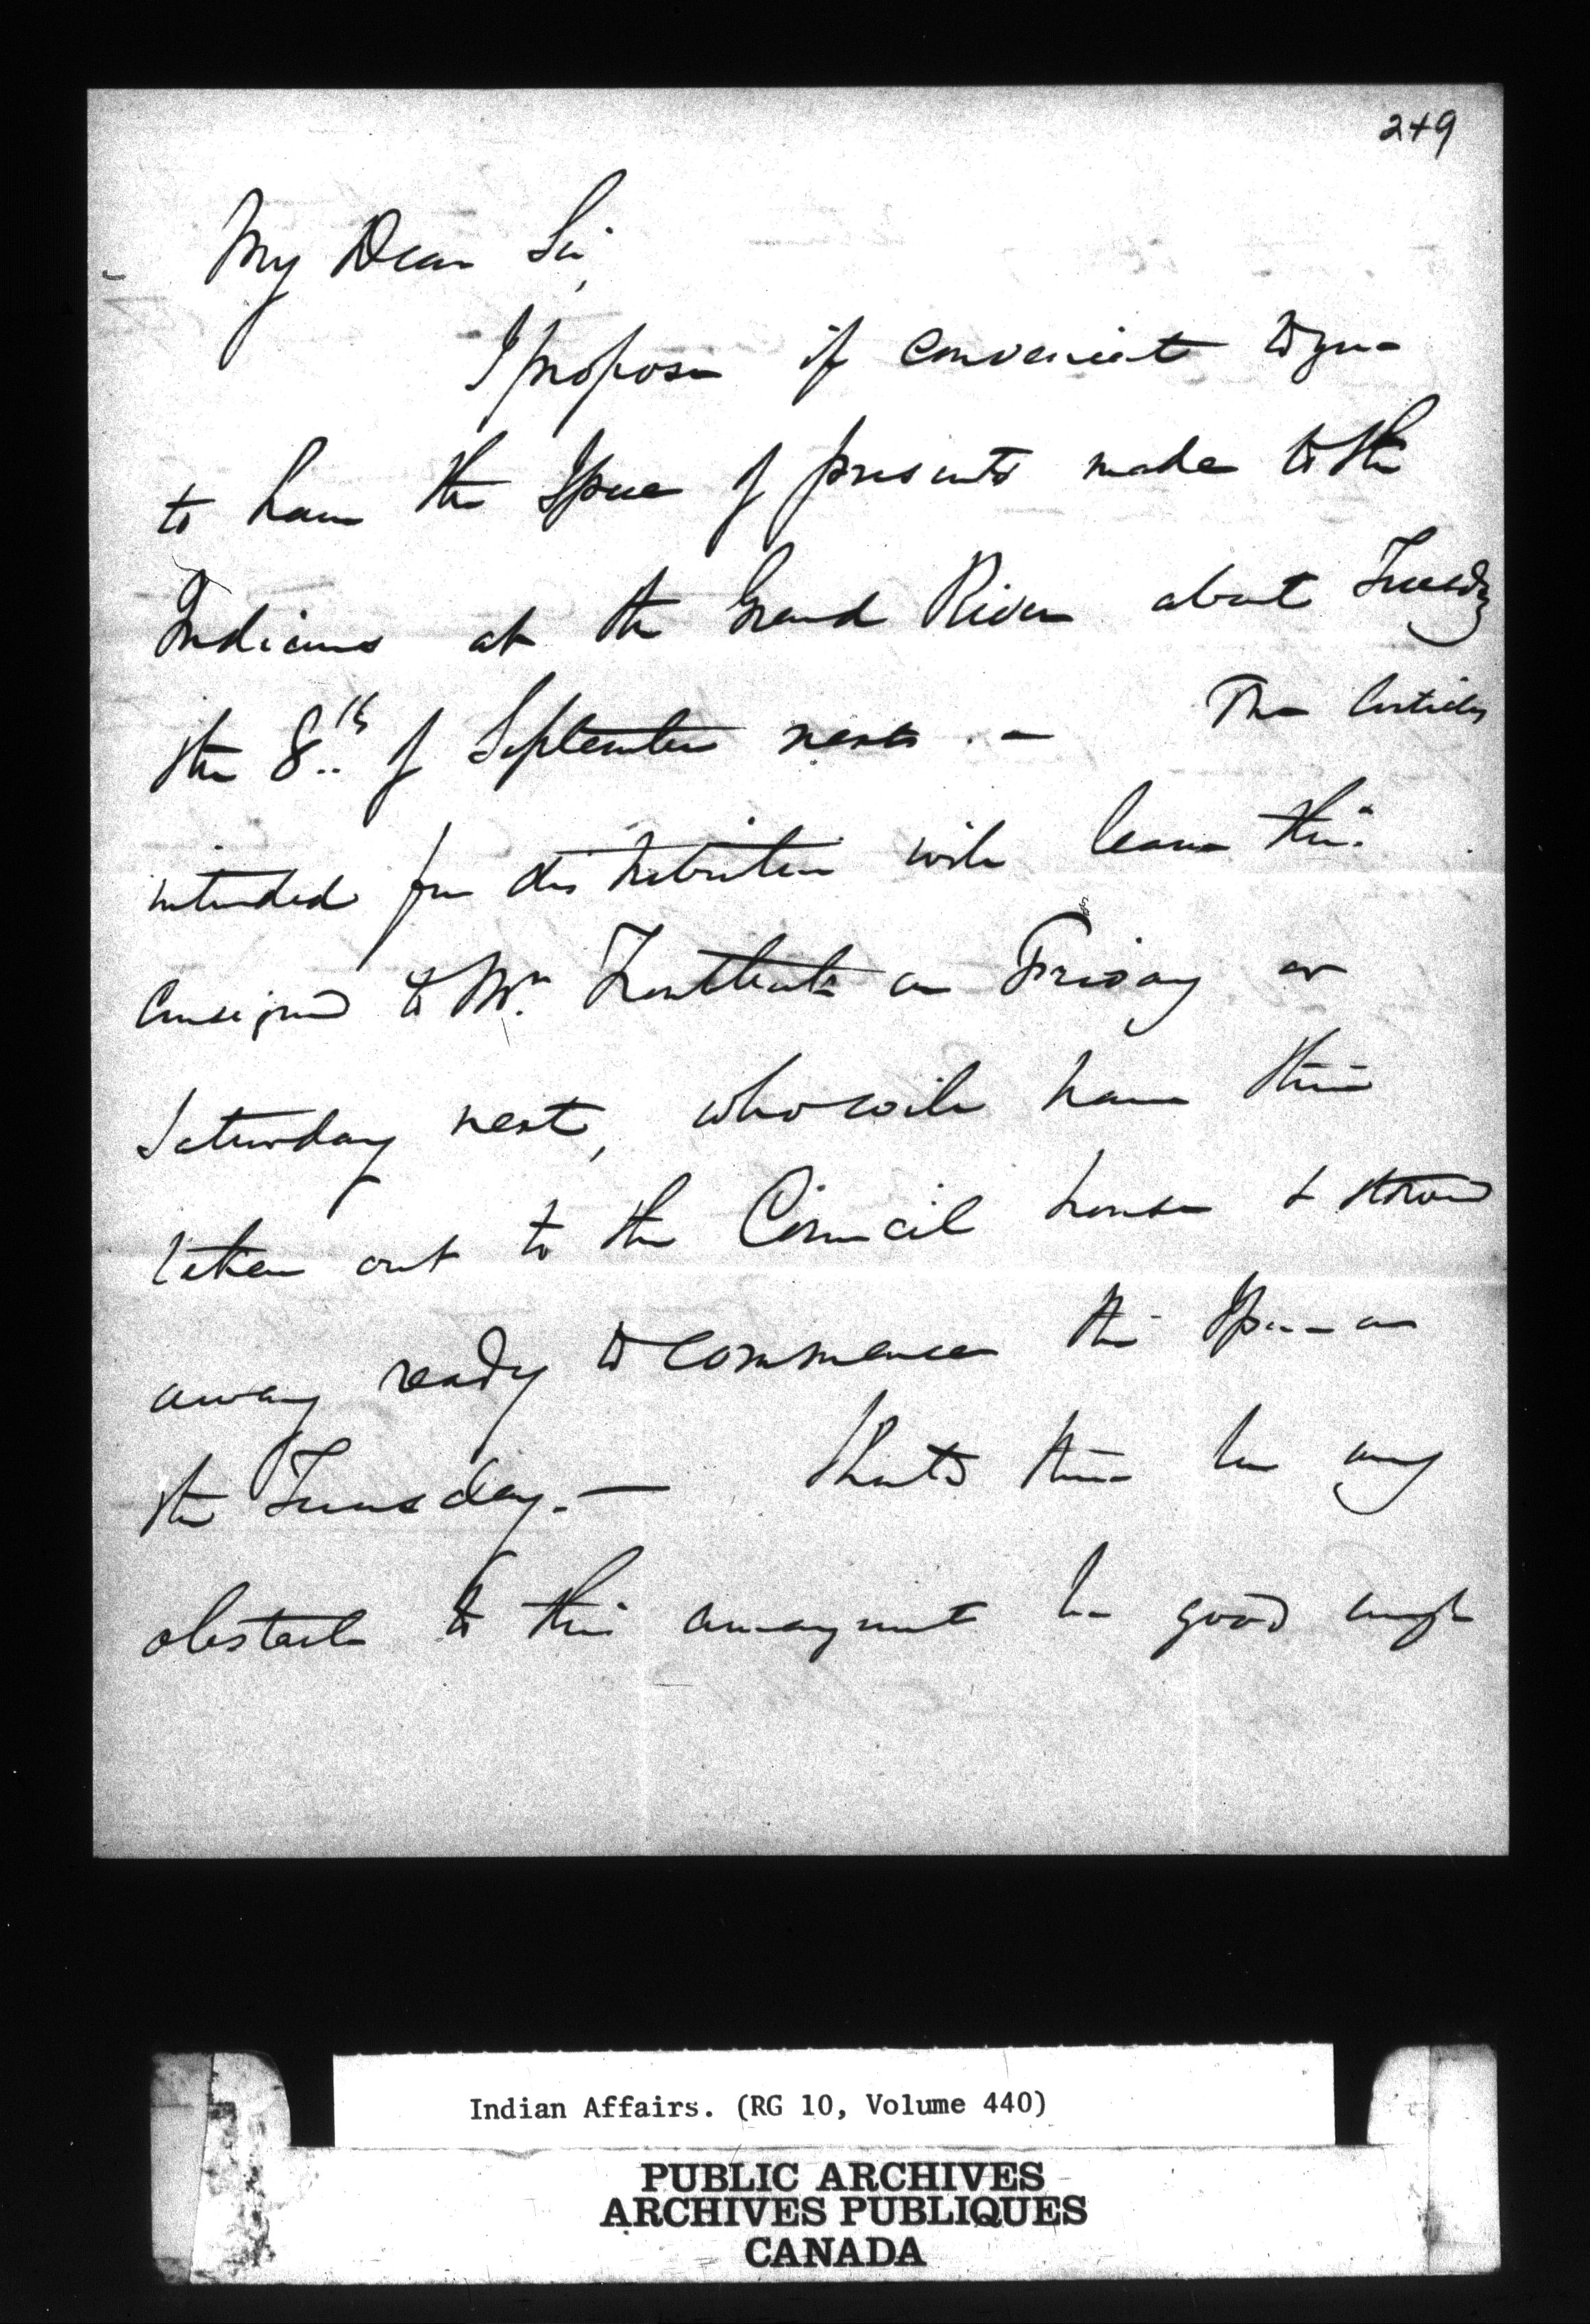 249
My Dear Sir,
I propose if convenient to you
to have the Issue of presents made to the
Indians at the Grand River about Tuesday
the 8th of September next. —  The Articles
intended for distribution will leave this
consigned to Mr. on Friday or
Saturday next, who will have them
taken out to the Council house & stored
away ready to commence the Issue on
the Tuesday. —  Should there be any
obstacle to this arrangement be good enough
Indian Affairs. (RG 10, Volume 440)
PUBLIC ARCHIVES
ARCHIVES PUBLIQUES
CANADA